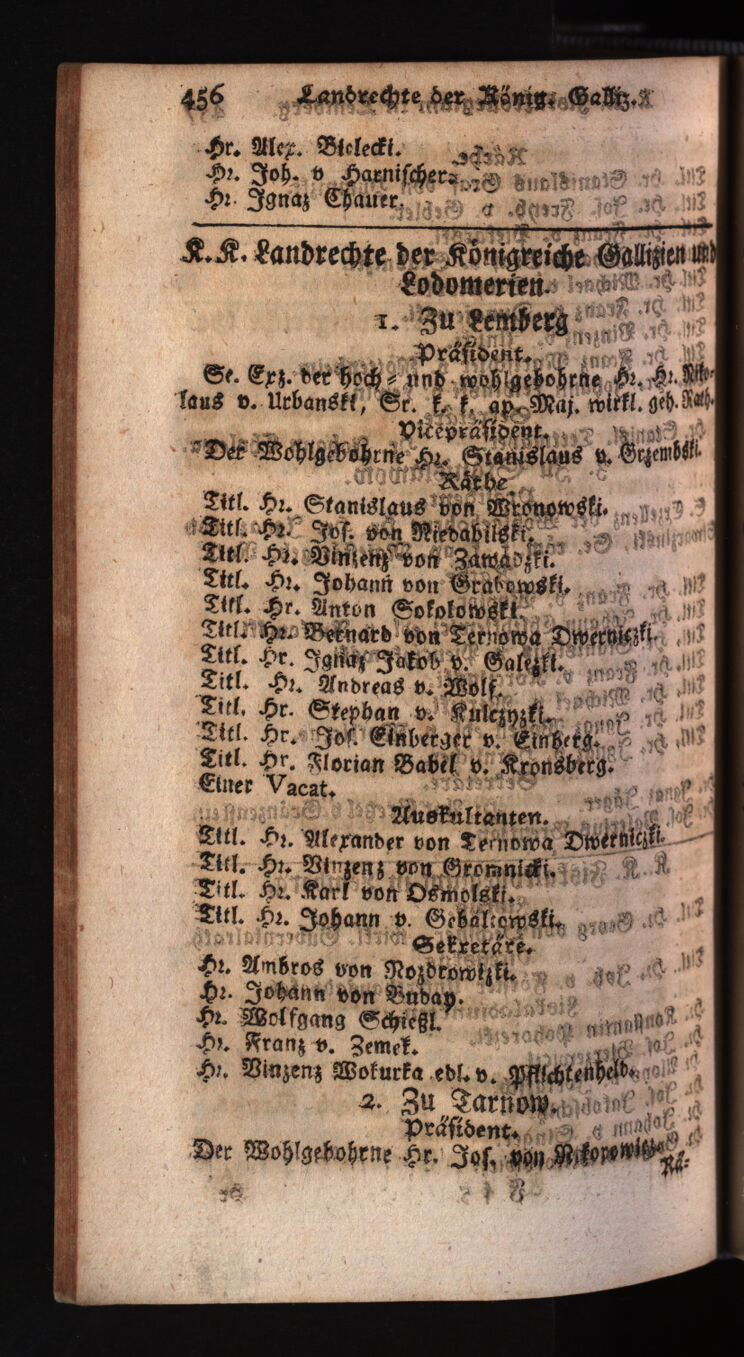 456 Landrechte der König. Galliz.
Hr. Alex. Bielecki.
Hr. Joh. v Harnischer.
Hr. Ignaz Chauer.
K. K. Landrechte der Königreiche Gallizien und
Lodomerien.
1. Zu Lemberg
Präsident.
Se. Exz. der hoch- und wohlgebohrne Hr. Hr. Niko-
laus v. Urbanski, Sr. k. k. ap. Maj. wirkl. geh. Rath.
Vicepräsident.
Der Wohlgebohrne Hr. Stanislaus v. Grzembski.
Räthe
Titl. Hr. Stanislaus von Wronowski.
Titl. Hr. Jos. von Niebabilski.
Titl. Hr. Vinzenz von Zawadzki.
Titl. Hr. Johann von Grabowski.
Titl. Hr. Anton Sokolowski
Titl. Hr. Bernard von Ternowa Dwerniczki.
Titl. Hr. Ignaz Jakob v. Galezki.
Titl. Hr. Andreas v. Wolf.
Titl. Hr. Stephan v. Kulczyzki.
Titl. Hr. Jos. Einberger v. Einberg.
Titl. Hr. Florian Babel v. Kronsberg.
Einer Vacat.
Auskultanten.
Titl. Hr. Alexander von Ternowa Dwerniczki.
Titl. Hr. Vinzenz von Gromnicki.
Titl. Hr. Karl von Osmolski.
Titl. Hr. Johann v. Gebaltowski.
Sekretäre.
Hr. Ambros von Rozdrowizki.
Hr. Johann von Bubay.
Hr. Wolfgang Schießl.
Hr. Franz v. Zemek.
Hr. Vinzenz Wokurka edl. v. Pflichtenheld.
2. Zu Tarnow.
Präsident.
Der Wohlgebohrne Hr. Jos. von Nikorowicz
Rä-